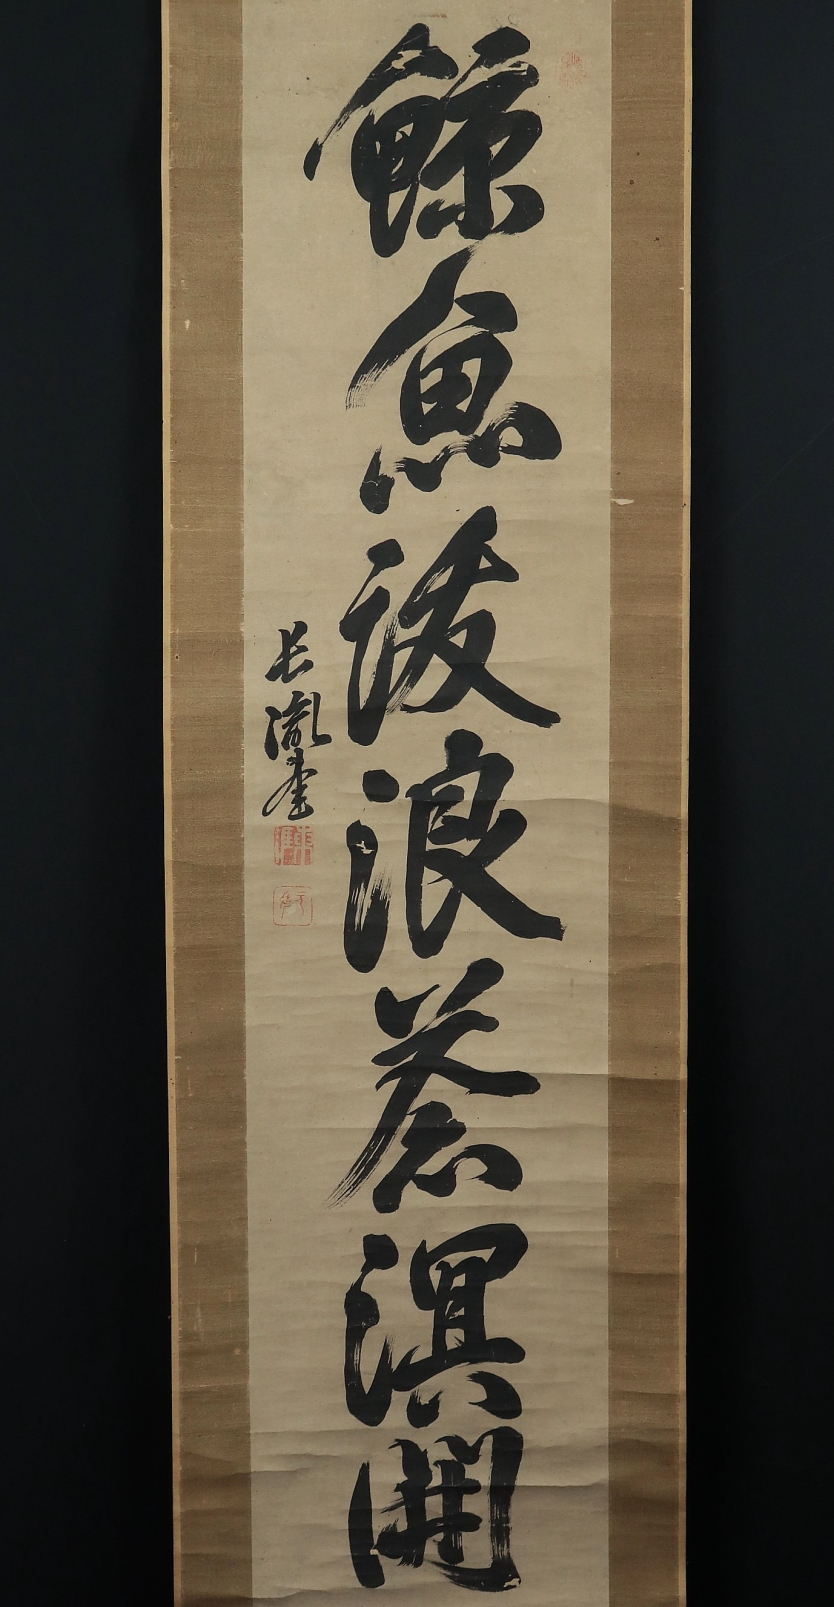 鯨魚波浪蒼溟開
長胤書